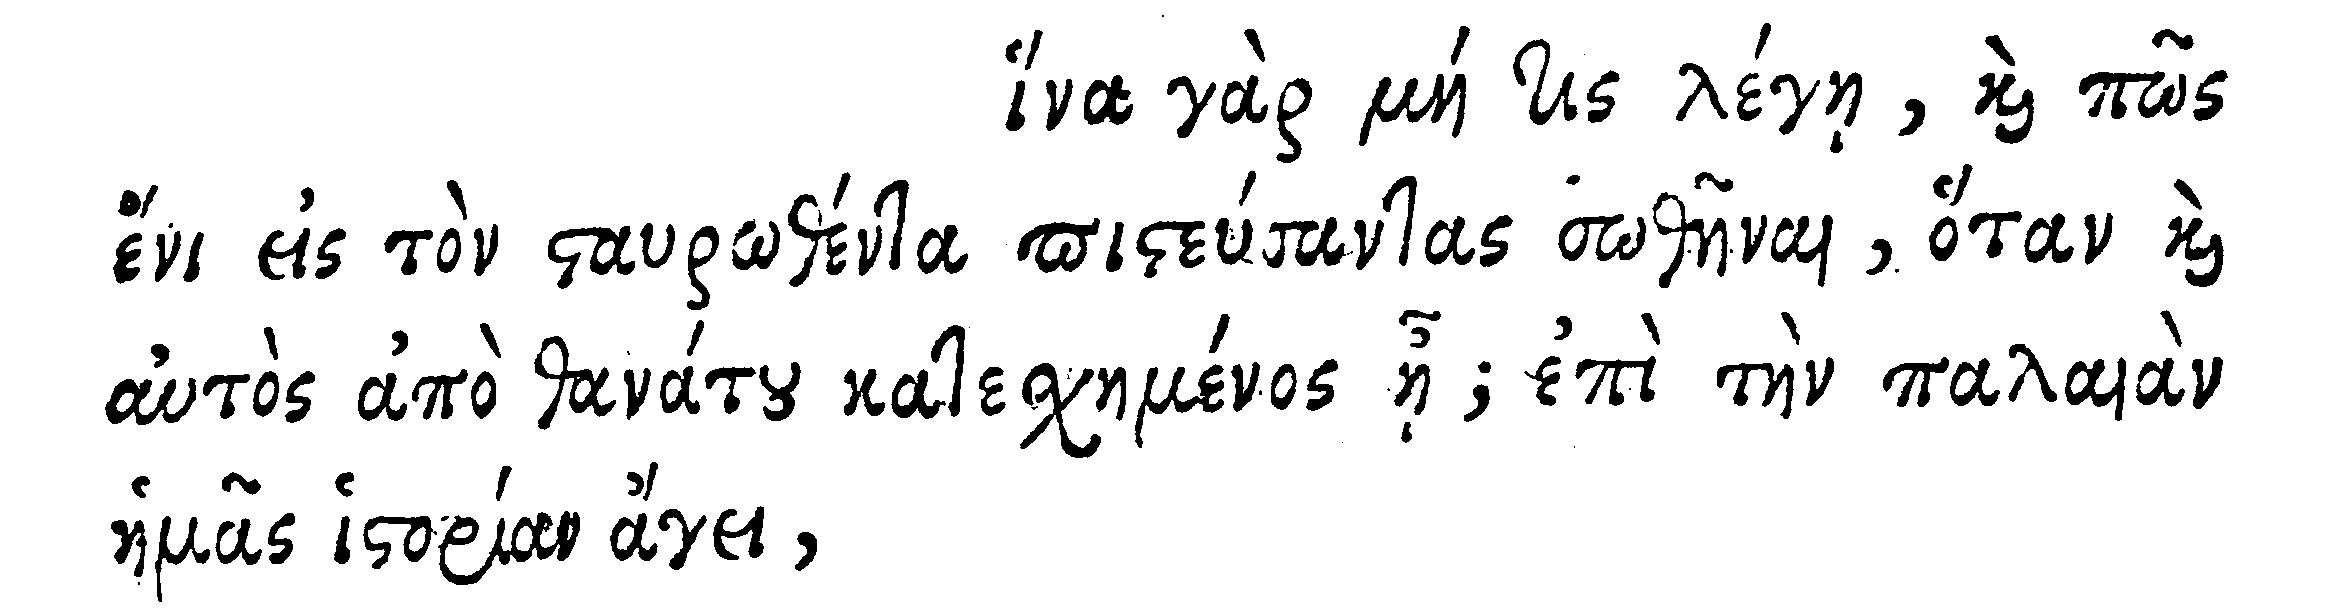 ἵνα γὰρ μή τις λέγῃ, ϗ̀ πῶς
ἔνι εἰς τὸν ϛαυρωθέντα πιϛεύσαντας σωθῆναι, ὅταν ϗ̀
αὐτὸς ἀπὸ θανάτȣ κατεχημένος ᾖ; ἐπὶ τὴν παλαιὰν
ἡμᾶς ἱϛορίαν ἄγει,